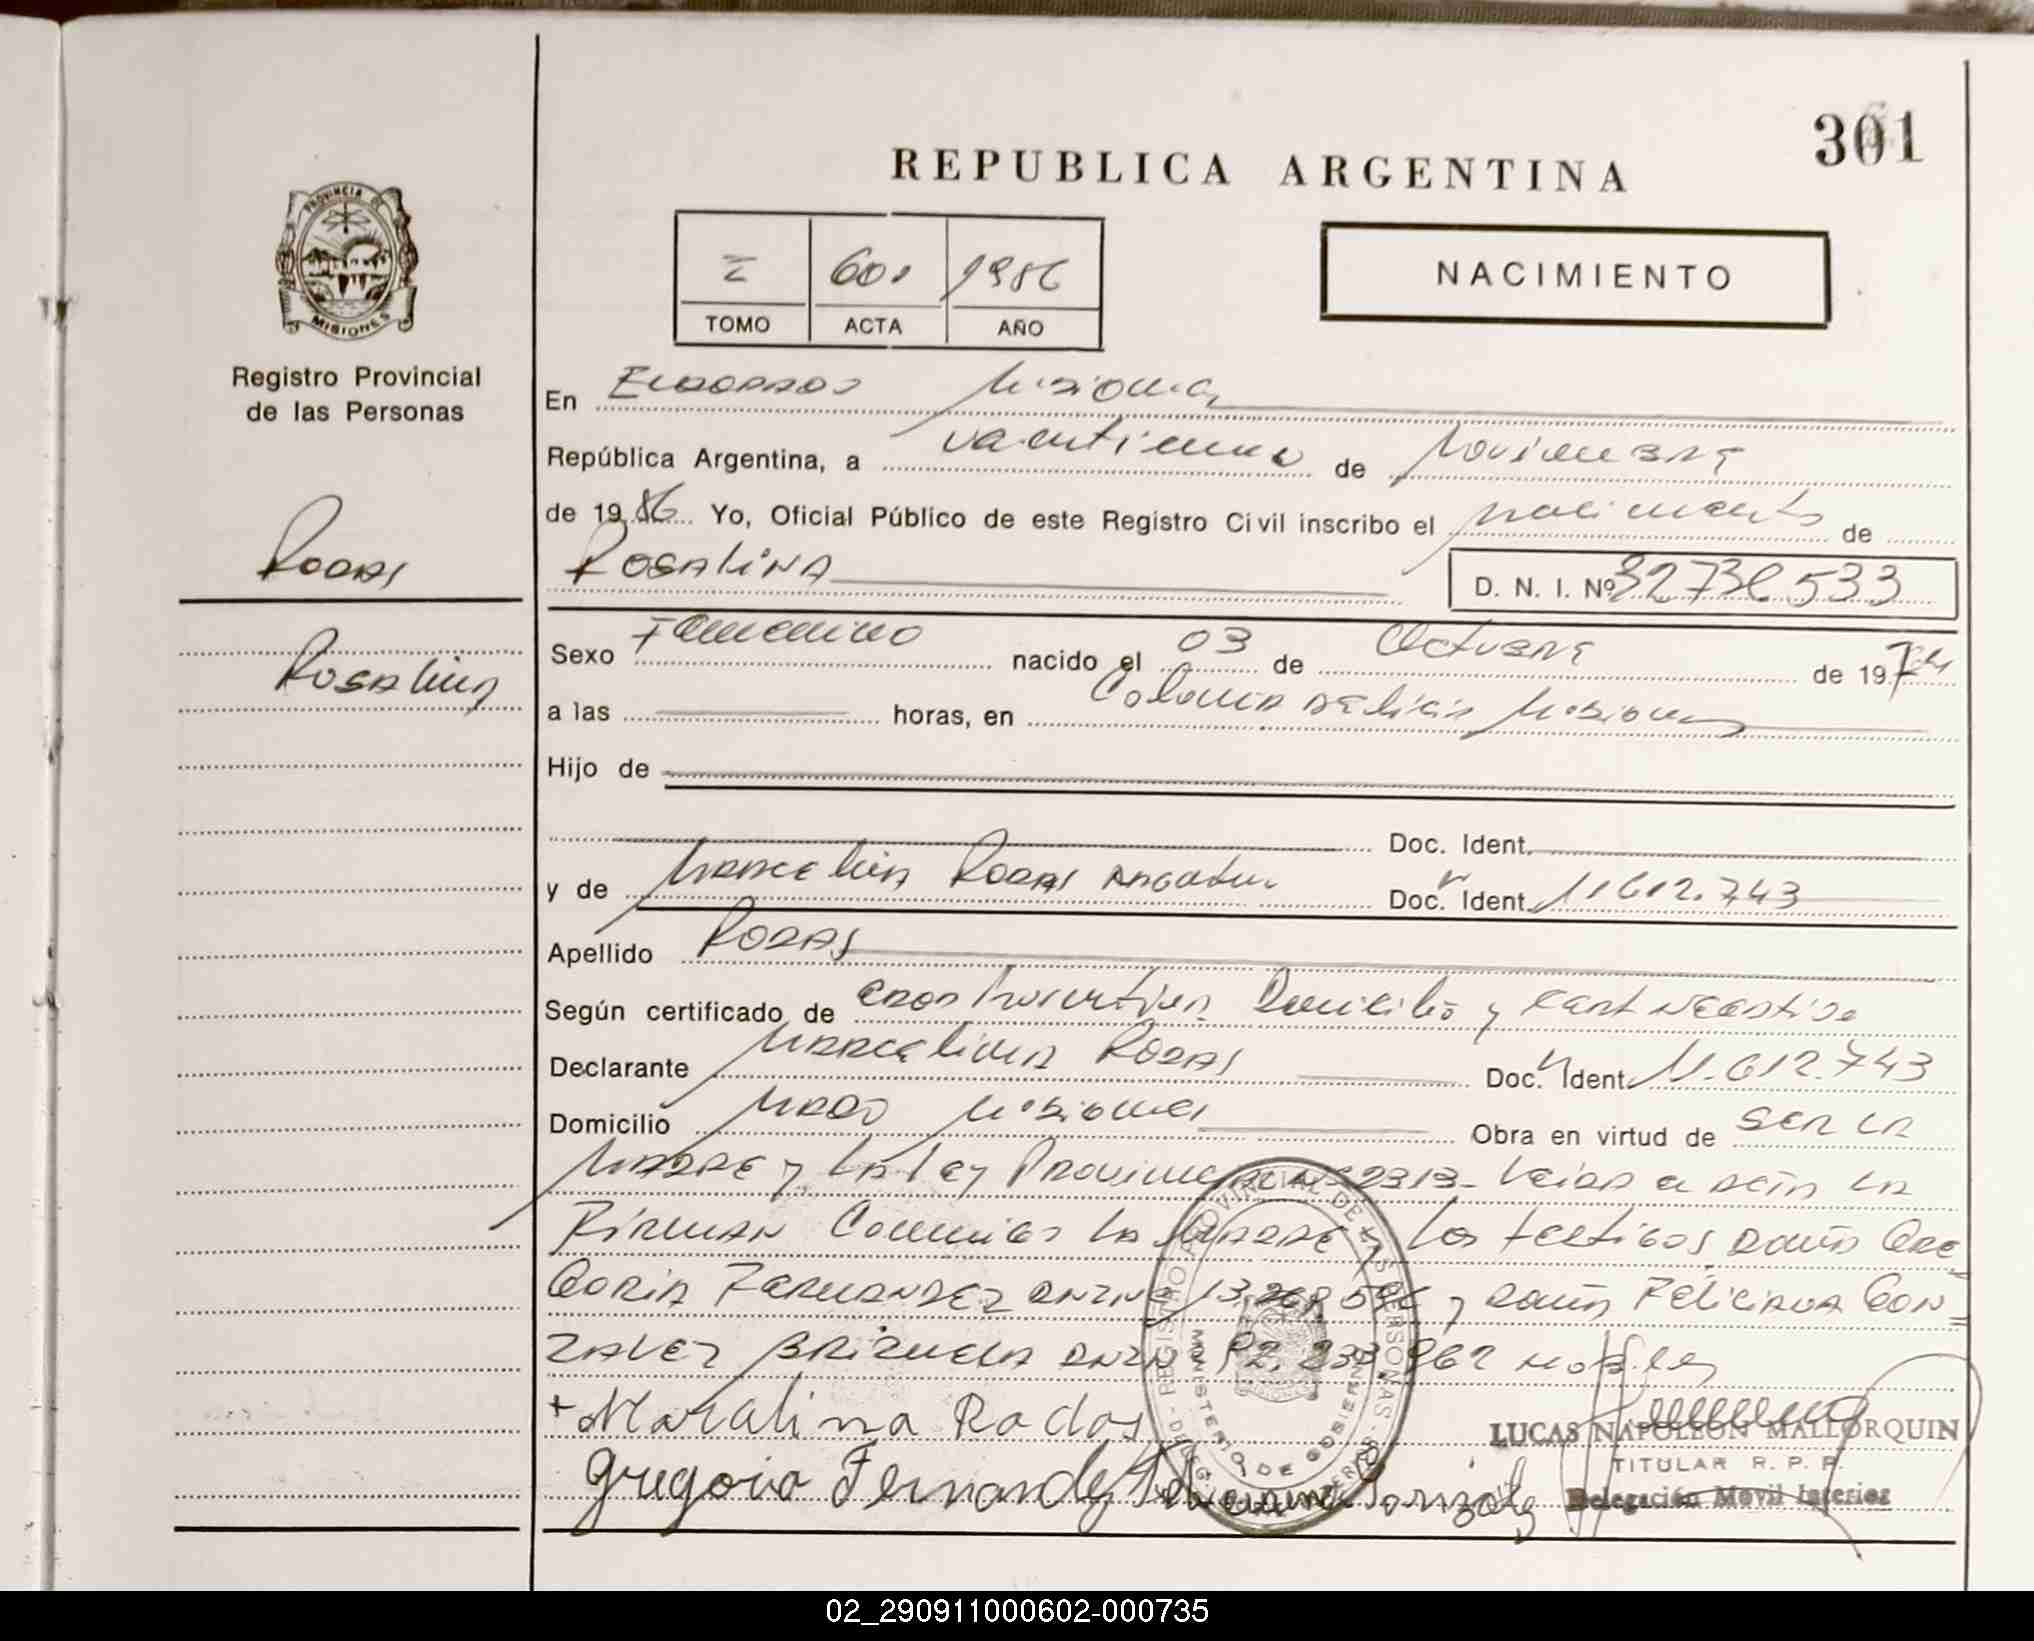 301
REPUBLICA ARGENTINA
PROVINCIA DE
MISIONES
Registro Provincial
de las Personas
I 601 1986
TOMO ACTA AÑO
NACIMIENTO
En Eldorado Misiones
República Argentina, a veintiuno de Noviembre
de 1986 Yo, Oficial Público de este Registro Civil inscribo el nacimiento de
Rodas
Rosalina
Rosalina D. N. I. Nº 32736533
Sexo Femenino nacido el 03 de Octubre de 1974
a las horas, en Colonia Delicia Misiones
Hijo de
Doc. Ident.
y de Marcelina Rodas Argentina Doc. Ident. 11612.743
Apellido Rodas
Según certificado de Domicilio y
Declarante Marcelina Rodas Doc. Ident. 11.612.743
Domicilio Mado Misiones Obra en virtud de ser la
Madre y la Ley Provincial Nº 2313- Leida el acta la
Firman Conmigo la Madre y los testigos Doña Gre
goria Fernandez DNI Nº 13.268.596 y Doña Feliciana Gon
zalez Brizuela DNI Nº 92.233.962
+ Marcalina Rodas
Gregoria Fernandez Feliciana Gonzalez
REGISTRO PROVINCIAL DE LAS PERSONAS
MINISTERIO DE GOBIERNO
LUCAS NAPOLEON MALLORQUIN
TITULAR R. P. P.
Delegación Movil Interior
02_290911000602-000735